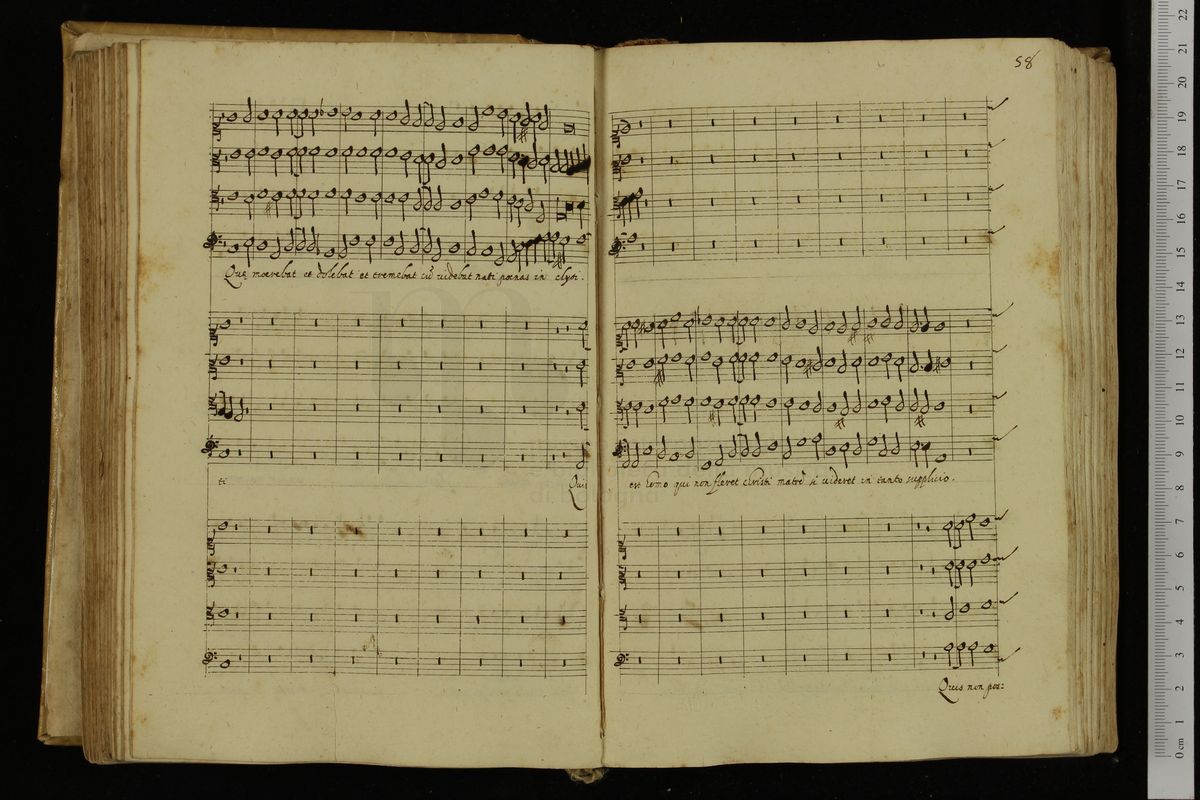 Que mœrebat et dolebat et tremebat cũ videbat nati pœnas in clyti.
ti
Quis
58
est homo qui non fleret christi matrẽ si videret in tanto supplicio.
Quis non pos:
22
21
20
19
18
17
16
15
14
13
12
11
10
9
8
7
6
5
4
3
2
1
0 cm